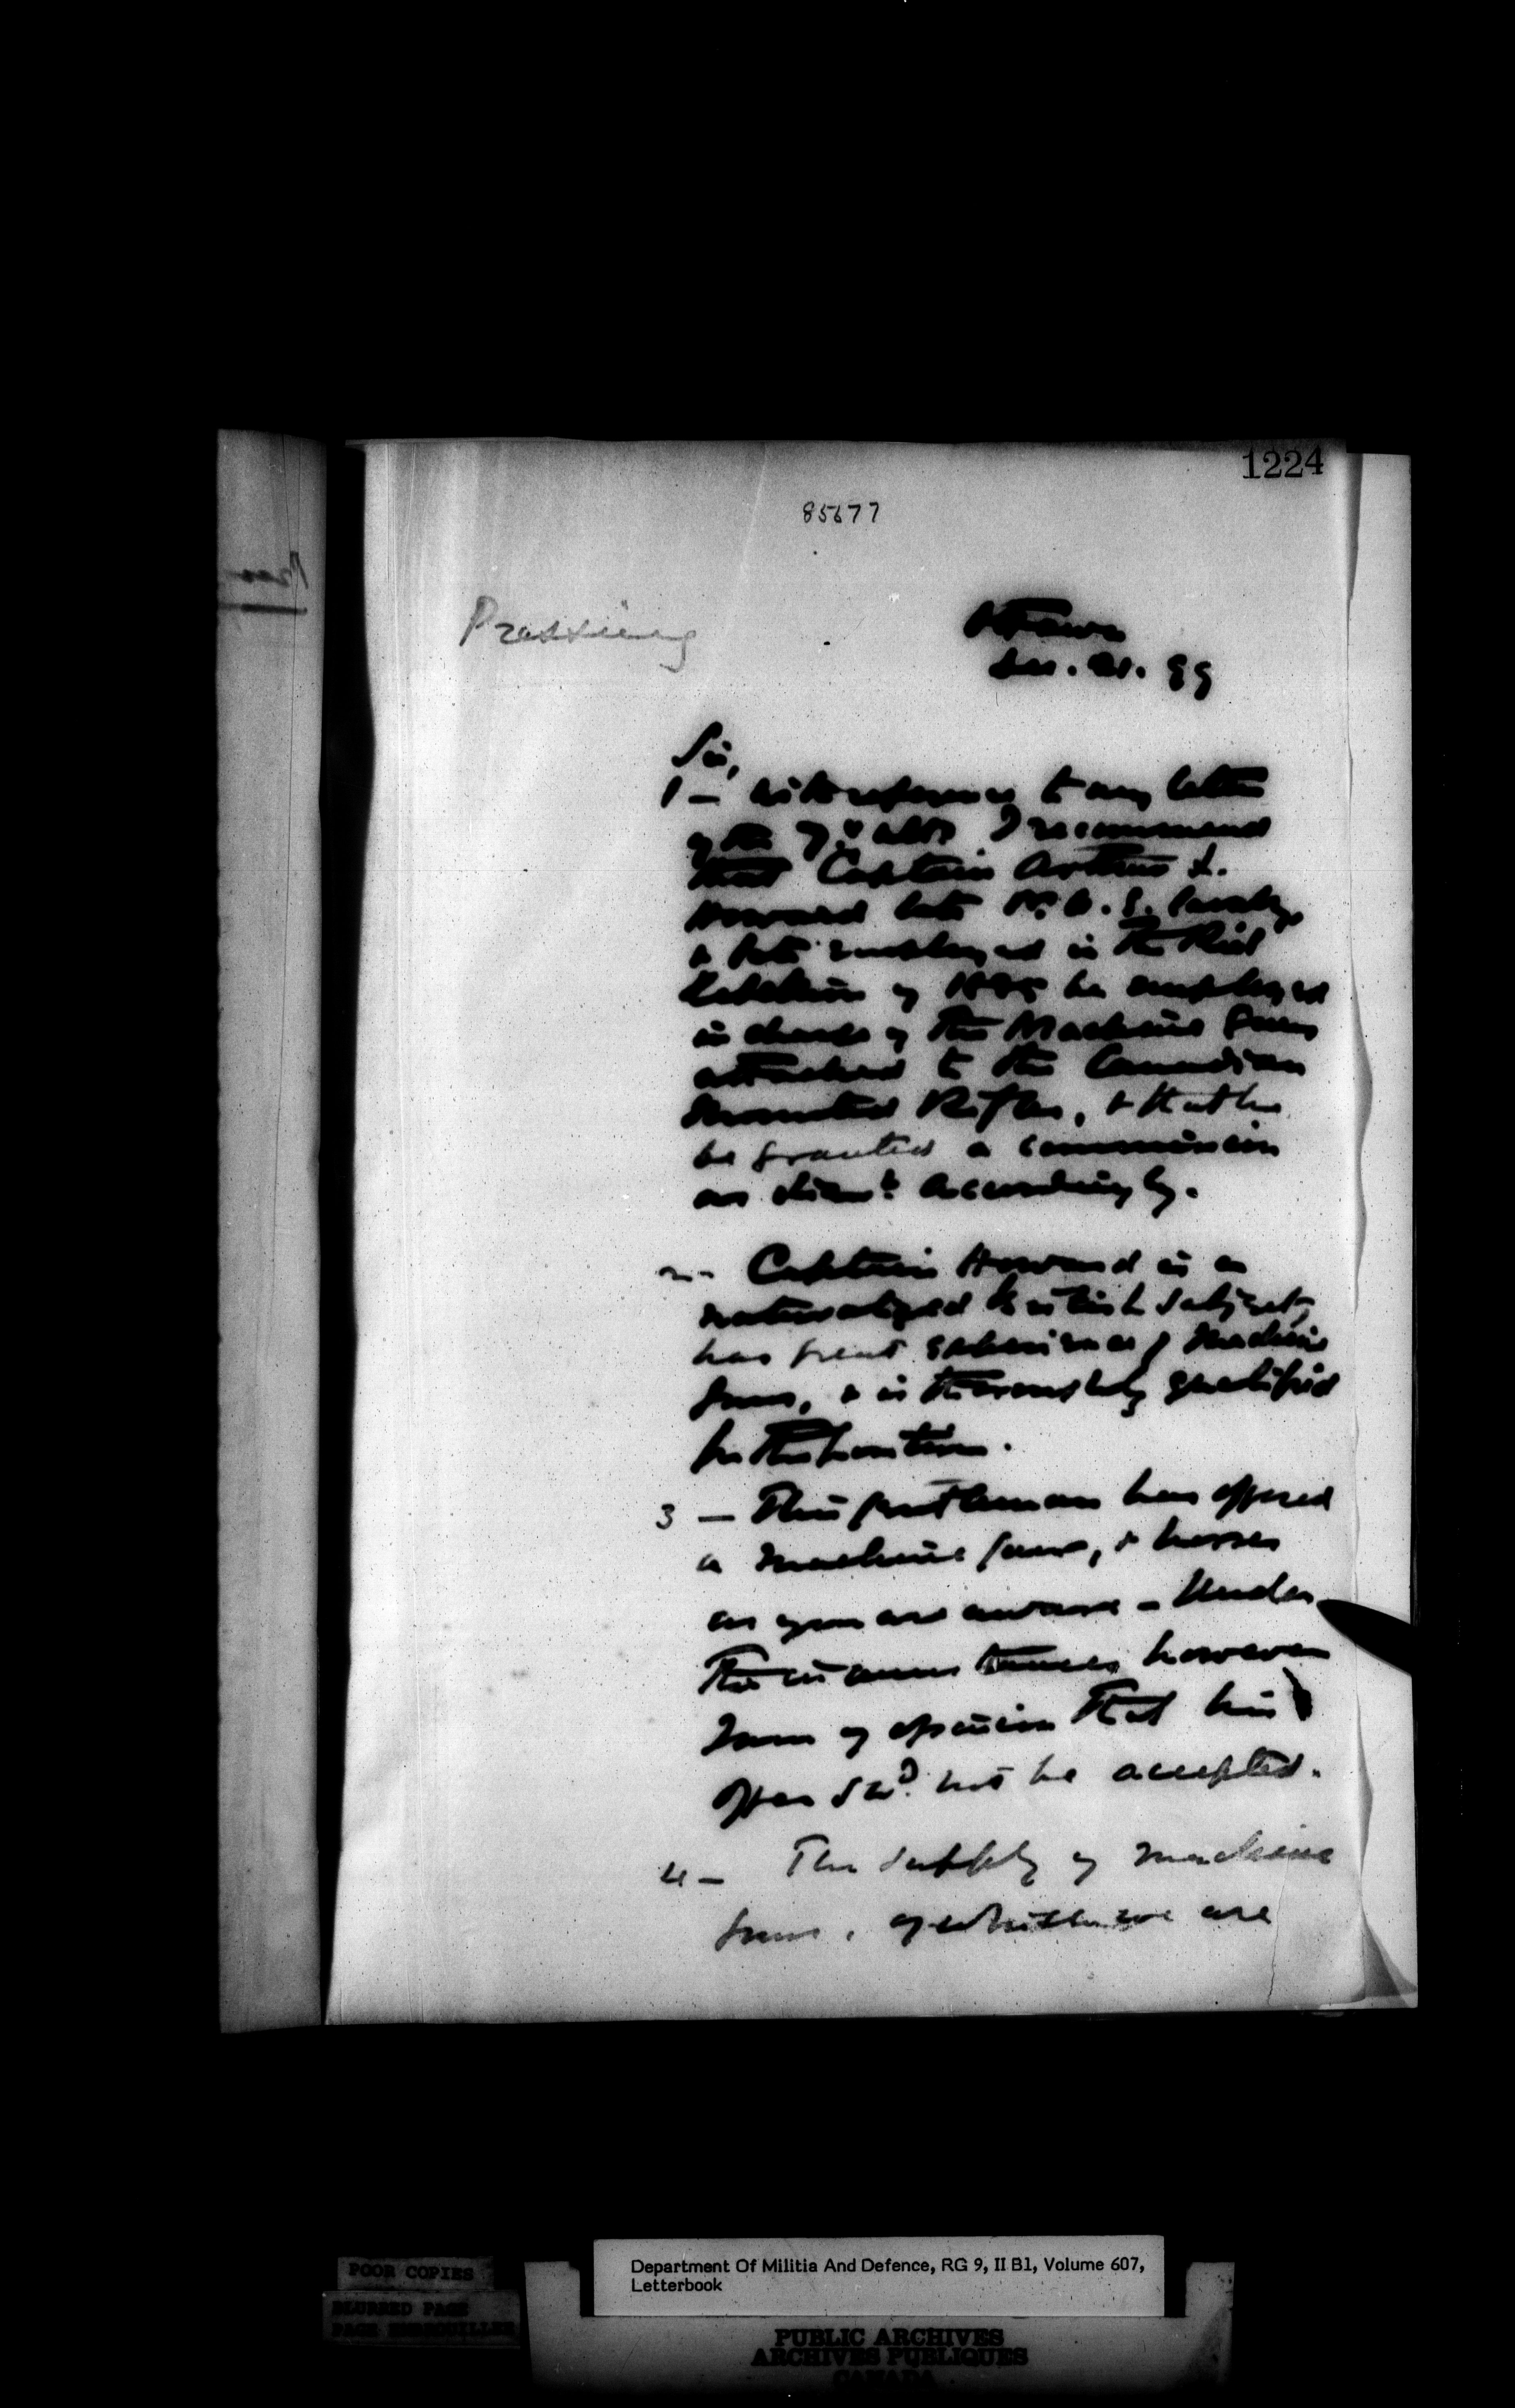 1224
85677
Pressing
Ottawa
Dec. 21. 99
Sir,
1 – With reference to my letter
of the 7th I recommend
that Captain Arthur L.
Howard late Cavalry,
& late employed in the Riel
Rebellion of 1885 be employed
in charge of the Machine Guns
attached to the Canadian
Mounted Rifles, & that he
be granted a commission
as Lieut. accordingly.
2 – Captain Howard is a
naturalized British subject,
has great experience of Machine
Guns, & is thoroughly qualified
for the position.
3 – This gentleman has offered
a machine gun, & horses
as you are aware – Under
the circumstances however
I am of opinion that his
offer shd. not be accepted.
4 – The supply of machine
guns, of which we are
Department Of Militia And Defence, RG 9, II B1, Volume 607,
Letterbook
POOR COPIES
BLURRED PAGE
PAGE EMBROUILLEE
PUBLIC ARCHIVES
ARCHIVES PUBLIQUES
CANADA